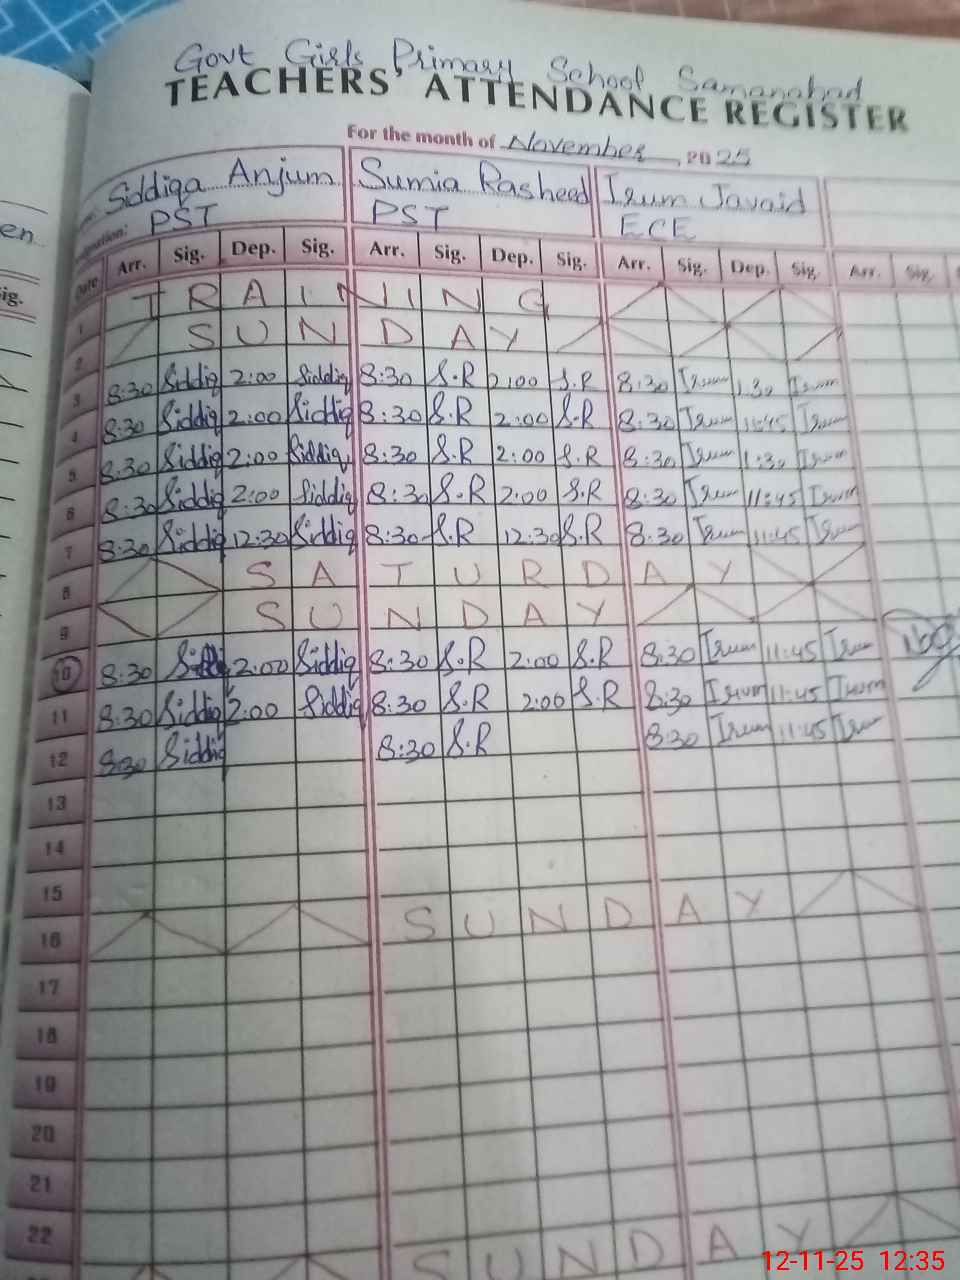 Govt Girls Primary School Samanabad
TEACHERS' ATTENDANCE REGISTER
For the month of November, 2025
Siddiqa Anjum Sumia Rasheed Irum Javaid
PST PST ECE
Date Arr. Sig. Dep. Sig. Arr. Sig. Dep. Sig. Arr. Sig. Dep. Sig. Arr. Sig.
1 TRAINING
2 SUNDAY
3 8:30 Siddiq 2:00 Siddiq 8:30 S.R 2:00 S.R 8:30 Irum 1:30 Irum
4 8:30 Siddiq 2:00 Siddiq 8:30 S.R 2:00 S.R 8:30 Irum 11:45 Irum
5 8:30 Siddiq 2:00 Siddiq 8:30 S.R 2:00 S.R 8:30 Irum 1:30 Irum
6 8:30 Siddiq 2:00 Siddiq 8:30 S.R 2:00 S.R 8:30 Irum 11:45 Irum
7 8:30 Siddiq 12:30 Siddiq 8:30 S.R 12:30 S.R 8:30 Irum 11:45 Irum
8 SATURDAY
9 SUNDAY
10 8:30 Siddiq 2:00 Siddiq 8:30 S.R 2:00 S.R 8:30 Irum 11:45 Irum
11 8:30 Siddiq 2:00 Siddiq 8:30 S.R 2:00 S.R 8:30 Irum 11:45 Irum
12 8:30 Siddiq 8:30 S.R 8:30 Irum 11:45 Irum
13
14
15
16 SUNDAY
17
18
19
20
21
22
SUNDAY
12-11-25 12:35